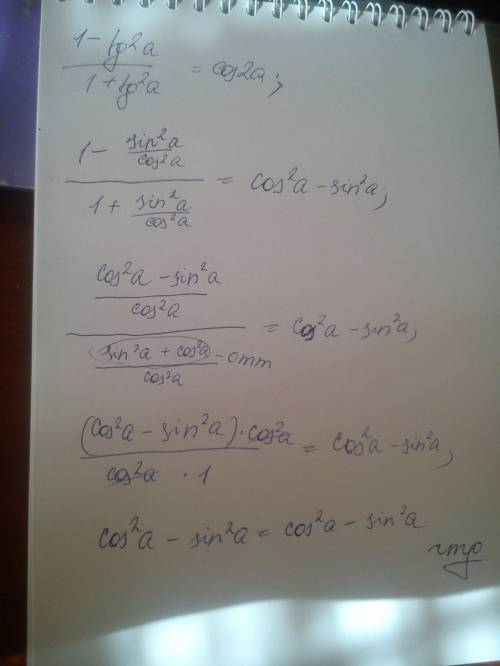 1 - tg²a
1 + tg²a = cos2a;
1 - sin²a/cos²a
1 + sin²a/cos²a = cos²a - sin²a;
cos²a - sin²a
cos²a
sin²a + cos²a - омт = cos²a - sin²a;
cos²a
(cos²a - sin²a) · cos²a
cos²a · 1 = cos²a - sin²a;
cos²a - sin²a = cos²a - sin²a
чтд